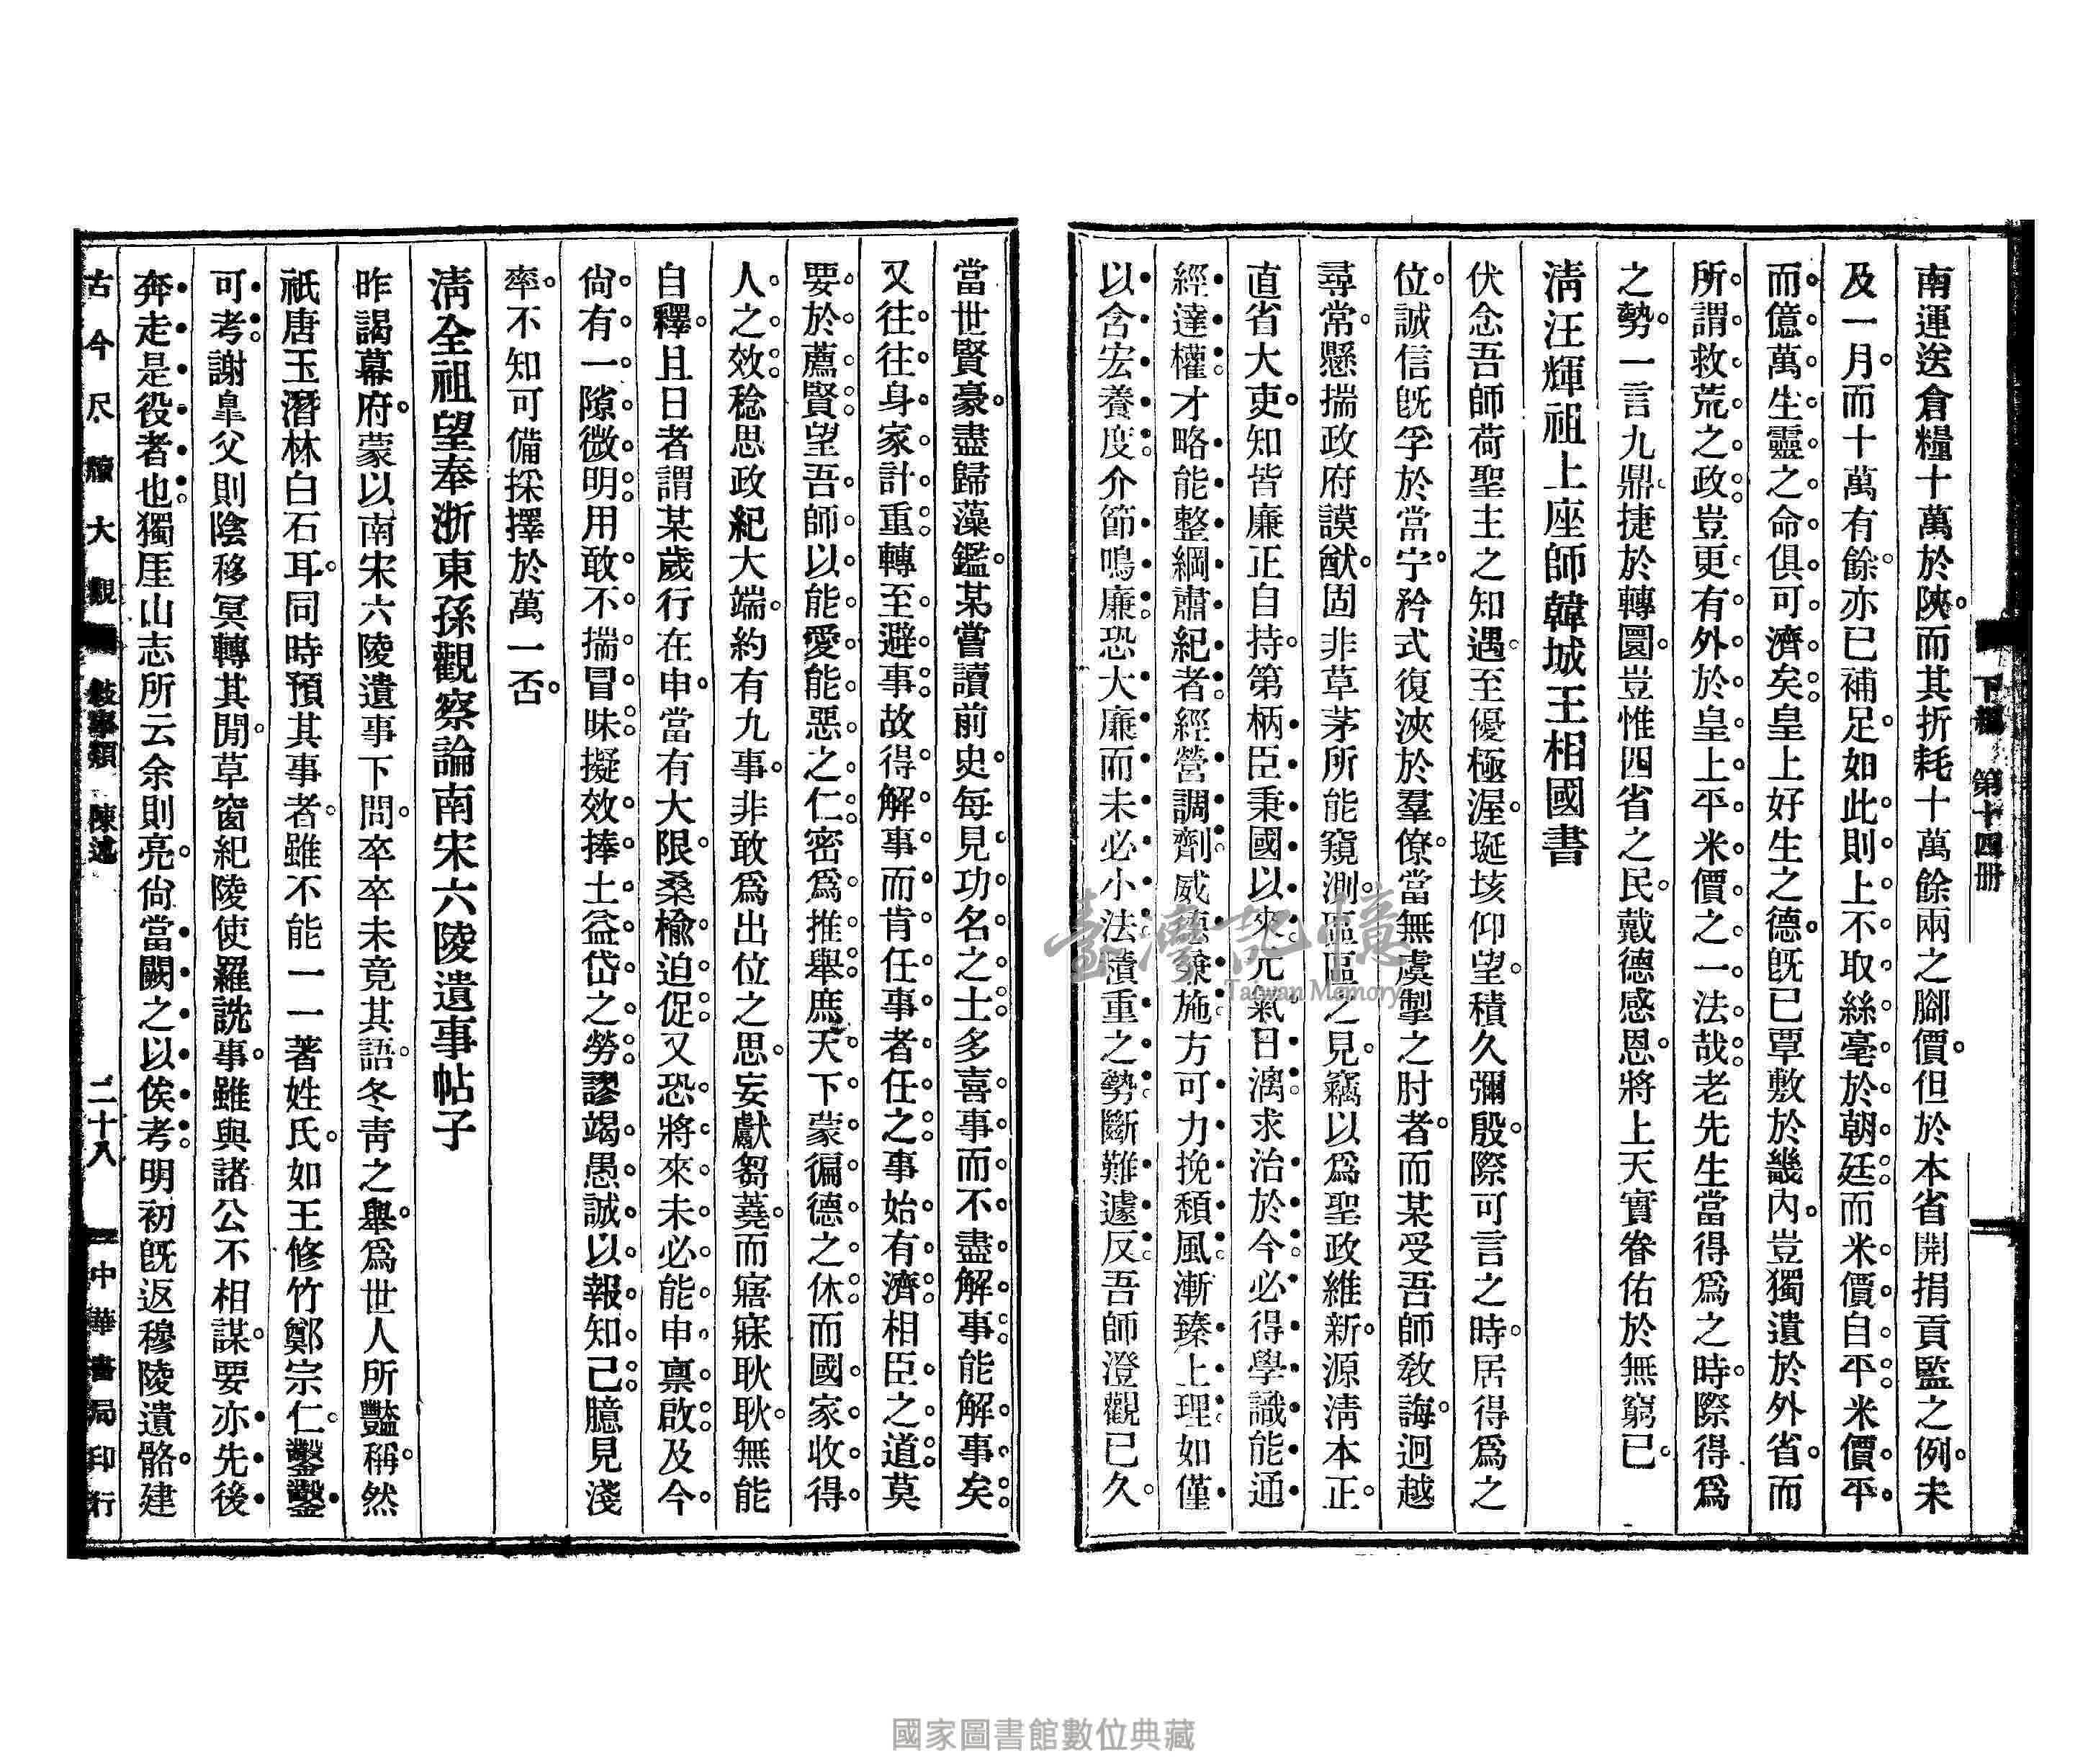 下編 第十四册
南運送倉糧十萬於陝。而其折耗十萬餘兩之腳價。但於本省開捐貢監之例。未
及一月。而十萬有餘。亦已補足。如此。則上不取絲毫於朝廷。而米價自平。米價平。
而億萬生靈之命俱可濟矣。皇上好生之德。旣已覃敷於畿內。豈獨遺於外省。而
所謂救荒之政。豈更有外於皇上平米價之一法哉。老先生當得爲之時。際得爲
之勢。一言九鼎。捷於轉圜。豈惟四省之民。戴德感恩。將上天實眷佑於無窮已。
淸汪輝祖上座師韓城王相國書
伏念吾師荷聖主之知遇。至優極渥。埏垓仰望。積久彌殷。際可言之時。居得爲之
位。誠信旣孚於當宁。矜式復浹於羣僚。當無虞掣之肘者。而某受吾師敎誨。迥越
尋常。懸揣政府謨猷。固非草茅所能窺測。區區之見。竊以爲聖政維新。源淸本正。
直省大吏。知皆廉正自持。第柄臣秉國以來。元氣日漓。求治於今。必得學識能通
經達權。才略能整綱肅紀者。經營調劑。威德兼施。方可力挽頹風。漸臻上理。如僅
以含宏養度。介節鳴廉。恐大廉而未必小法。積重之勢。斷難遽反。吾師澄觀已久。
當世賢豪。盡歸藻鑑。某嘗讀前史。每見功名之士。多喜事而不盡解事。能解事矣。
又往往身家計重。轉至避事。故得解事而肯任事者任之。事始有濟。相臣之道。莫
要於薦賢。望吾師以能愛能惡之仁。密爲推舉。庶天下蒙徧德之休。而國家收得
人之效。稔思政紀大端。約有九事。非敢爲出位之思。妄獻芻蕘。而寤寐耿耿。無能
自釋。且日者謂某歲行在申。當有大限。桑榆迫促。又恐將來未必能申稟啟。及今
尙有一隙微明。用敢不揣冒昧。擬效捧土益岱之勞。謬竭愚誠。以報知己。臆見淺
率。不知可備採擇於萬一否。
淸全祖望奉浙東孫觀察論南宋六陵遺事帖子
昨謁幕府。蒙以南宋六陵遺事下問。卒卒未竟其語。冬靑之舉。爲世人所豔稱。然
祇唐玉潛林白石耳。同時預其事者。雖不能一一著姓氏。如王修竹鄭宗仁。鑿鑿
可考。謝皐父則陰移冥轉其閒。草窗紀陵使羅詵事。雖與諸公不相謀。要亦先後
奔走是役者也。獨厓山志所云余則亮。尙當闕之以俟考。明初旣返穆陵遺骼。建
古今尺牘大觀 敍事類 陳述 二十八 中華書局印行
臺灣記憶
Taiwan Memory
國家圖書館數位典藏